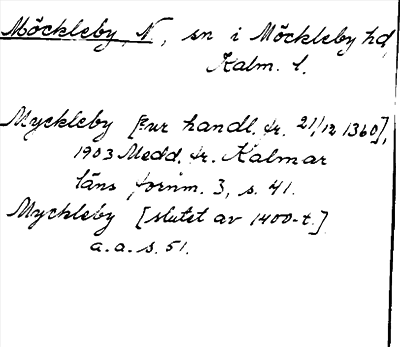 Möckleby, N, sn i Möckleby hd,
Kalm. l.
Myckleby [ur handl. fr. 21/12 1360],
1903 Medd. fr. Kalmar
läns fornm. 3, s. 41.
Myckleby [slutet av 1400-t.]
a.a. s. 51.